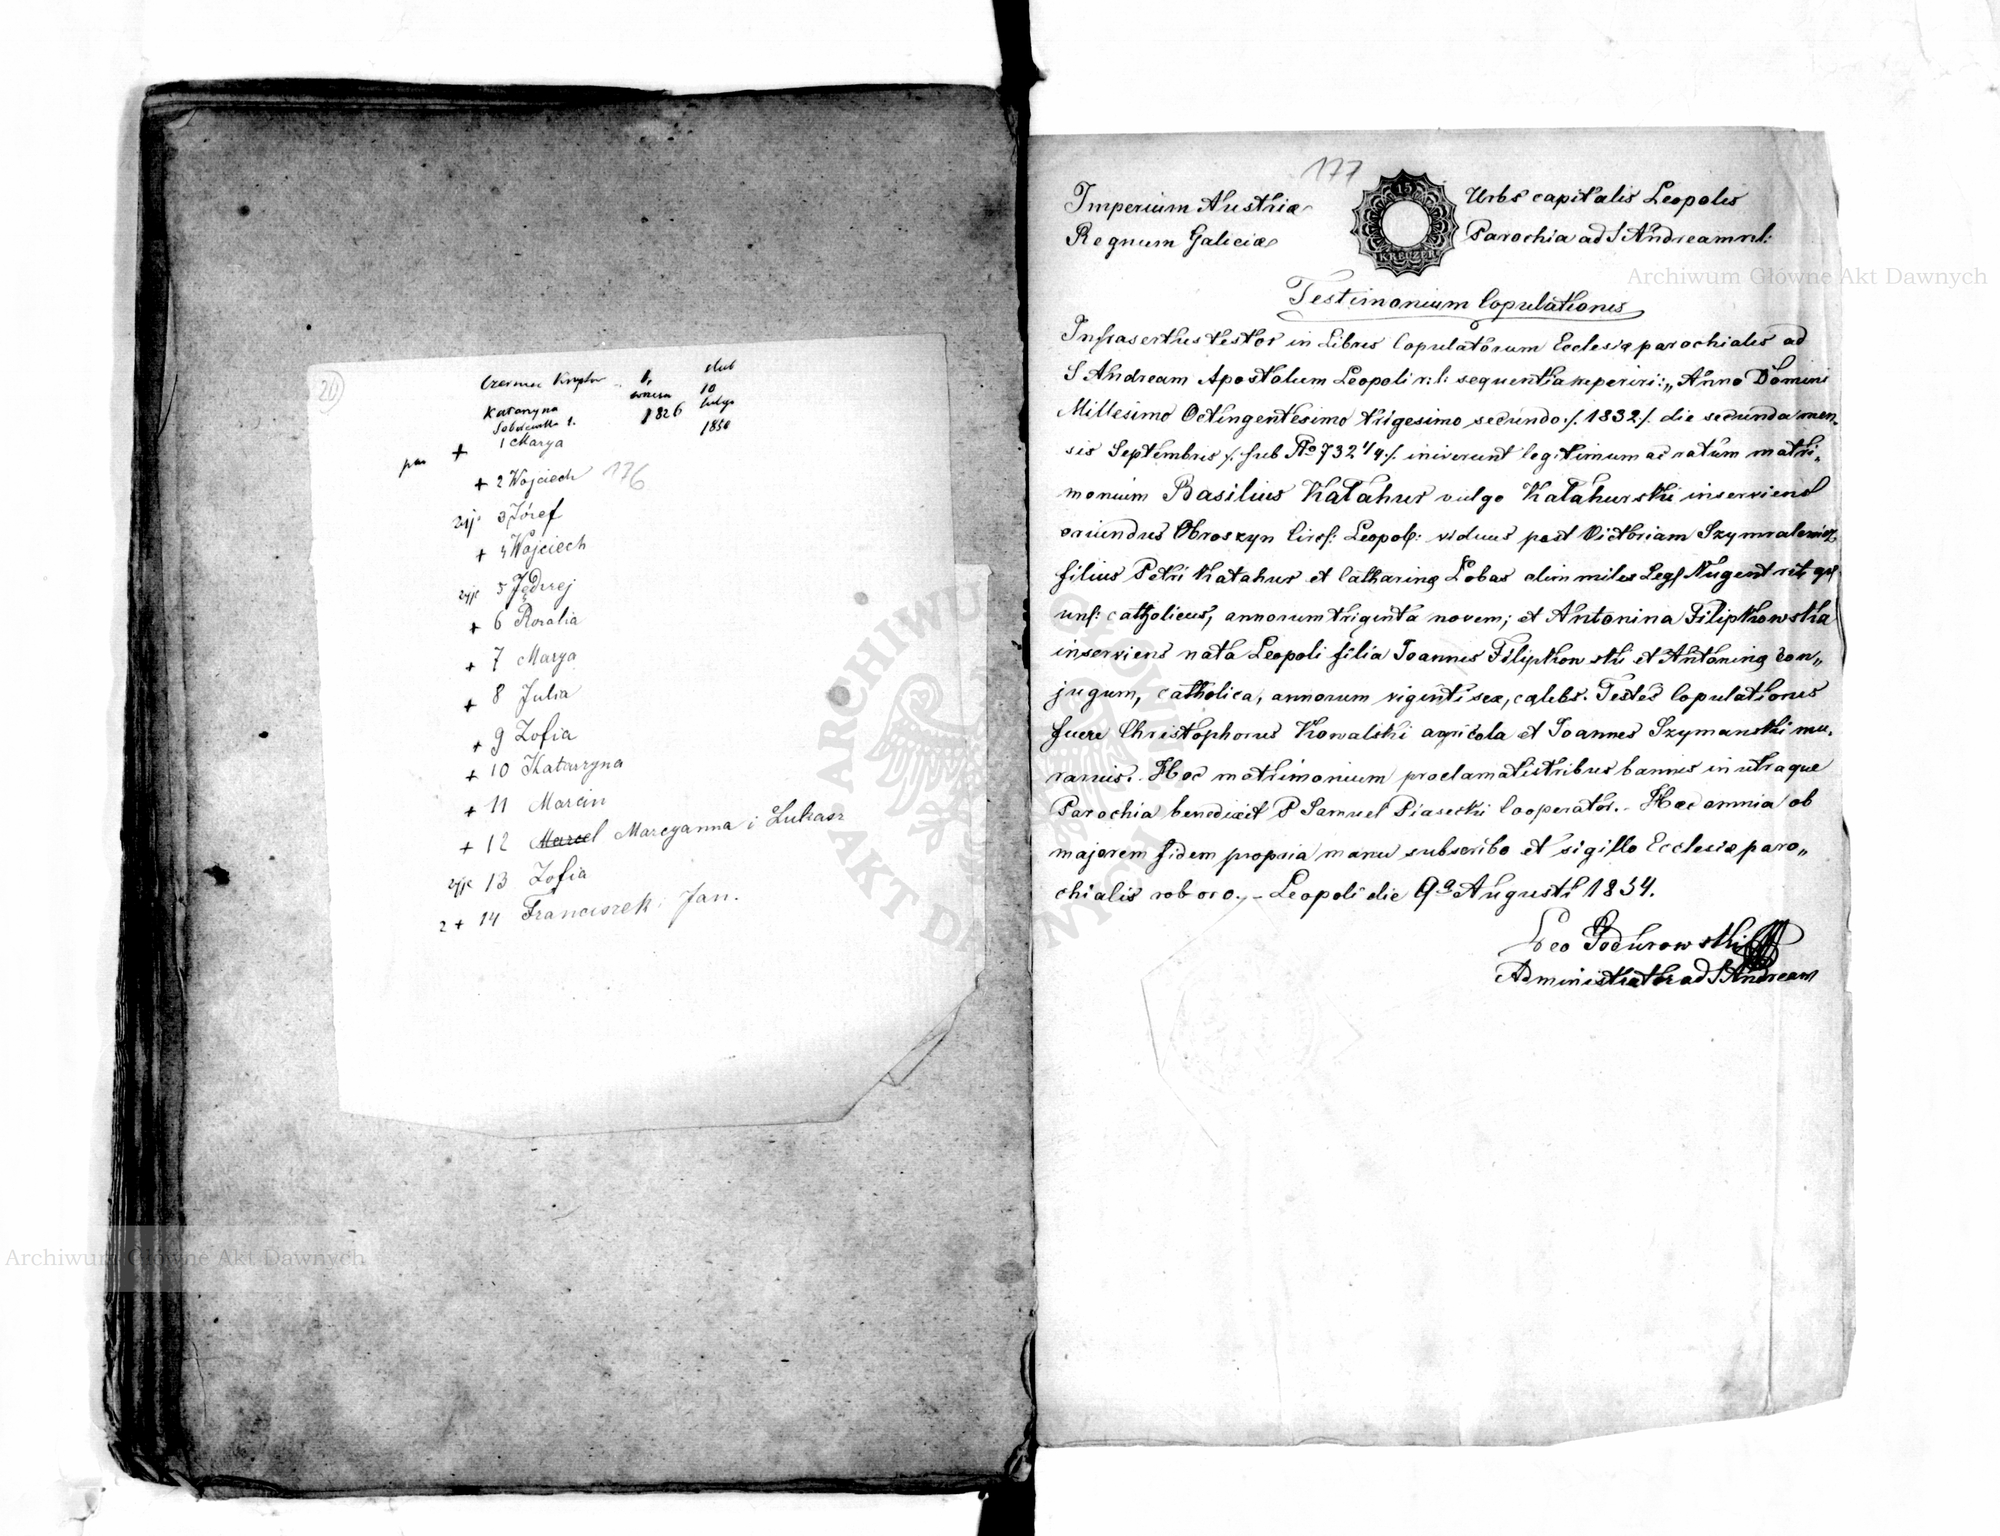 20
Katarzyna
1826
1850
+ 1 Marya
+ 2 Wojciech 176
żyje 3 Józef
+ 4 Wojciech
żyje 5 Jędrzej
+ 6 Rozalia
+ 7 Marya
+ 8 Julia
+ 9 Zofia
+ 10 Katarzyna
+ 11 Marcin
+ 12 Marcel Marcyanna i Łukasz
żyje 13 Zofia
2 + 14 Franciszek i Jan.
177
Imperium Austriæ
Regnum Galiciæ
15
KREUZER
Urbs capitalis Leopolis
Parochia ad S Andream r.l:
Testimonium Copulationis
Infrascriptus testor in Libris Copulatorum Ecclesiæ parochialis ad
S Andream Apostolum Leopoli r: l: sequentia reperiri: „Anno Domini
Millesimo Octingentesimo trigesimo secundo ./. 1832 ./. die secunda men„
sis Septembris ./. sub No 732 1/4 ./. iniverunt legitimum ac ratum matri„
monium Basilius Katahur vulgo Katahurski inserviens
oriundus Obroszyn Circ: Leopol: viduus post Victoriam
filius Petri Katahur et Catharinæ Lobas olim miles Leg: Nugent rit: gr:
unf: catholicus, annorum triginta novem; et Antonina Filipkowska
inserviens nata Leopoli filia Joannis Filipkowski et Antoninæ con„
jugum, catholica, annorum viginti sex, cælebs. Testes Copulationis
fuere Christophorus Kowalski agricola et Joannes Szymanski mu„
rarius. Hoc matrimonium proclamatis tribus bannis in utraque
Parochia benedixit P Samuel Piasecki Cooperator. - Hæc omnia ob
majorem fidem propria manu subscribo et sigillo Ecclesiæ paro„
chialis roboro. - Leopoli die 9a Augusti 1854.
Leo Podurowski
Administrator ad S Andream
Archiwum Główne Akt Dawnych
Archiwum Główne Akt Dawnych